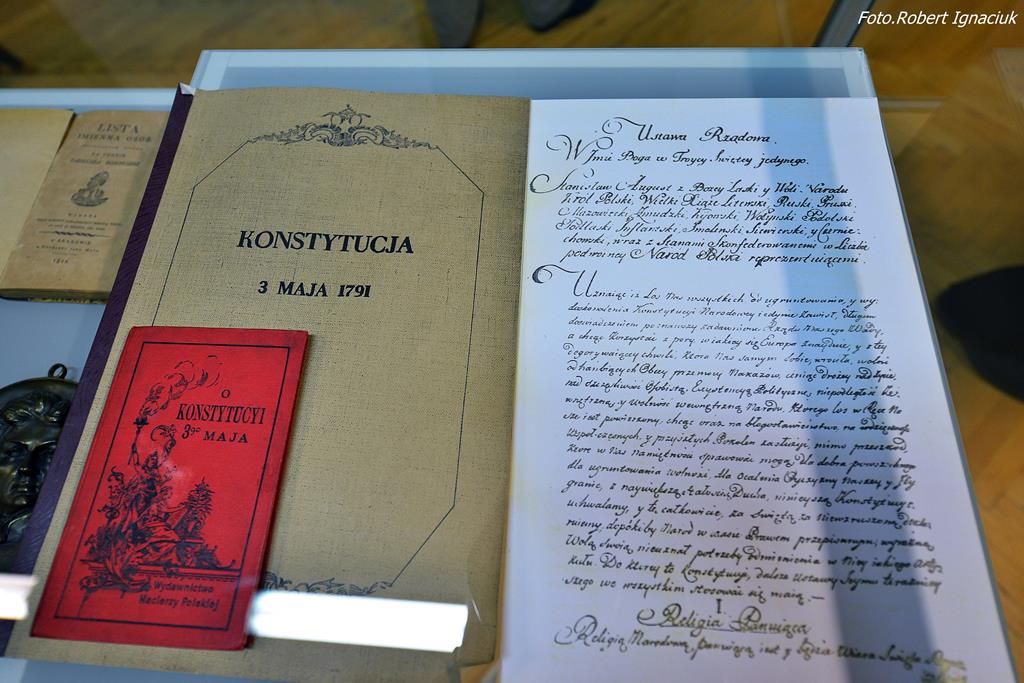 Foto.Robert Ignaciuk
LISTA
IMIENNA OSOB
KONSTYTUCJA
3 MAJA 1791
O
KONSTYTUCYI
3go MAJA
Wydawnictwo
Macierzy Polskiej
Ustawa Rządowa.
W Imię Boga w Troycy Swiętey jedynego.
Stanisław August z Bożey Łaski y Woli Narodu
Król Polski, Wielki Xiąże Litewski, Ruski, Pruski,
Mazowiecki, Żmudzki, Kijowski, Wołyński, Podolski
Podlaski, Inflantski, Smoleński, Siewierski, y Czernie-
chowski, wraz z Stanami Skonfederowanemi w Liczbie
podwoyney Narod Polski reprezentuiącemi.
Uznaiąc iż Los Nas wszystkich od ugruntowania, y wy-
doskonalenia Konstytucyi Narodowey iedynie zawisł, długim
doświadczeniem poznawszy zadawnione Rządu Naszego Wady,
a chcąc korzystać z pory, w iakiey się Europa znayduie, y z tey
dogorywaiącey chwili, która Nas samym Sobie wrocila, wolni
od hańbiących Obcey przemocy Nakazów, ceniąc drożey nad życie,
nad szczęśliwość Osobistą, Exystencyą Polityczną, niepodległość ze-
wnętrzną, y Wolność wewnętrzną Narodu, ktorego los w Ręce Na-
sze iest powierzony, chcąc oraz na błogosławieństwo, na
Współczesnych, y przyszłych Pokoleń zasłużyć, mimo przeszkód,
które w Nas namiętności sprawować mogą, dla dobra powszechnego
dla ugruntowania wolności, dla Ocalenia Oyczyzny Naszey, y Iey
granic, z naywiększą Stałością Ducha, ninieyszą Konstytucyę
uchwalamy, y tę całkowicie, za Swiętą, za niewzruszoną dekla-
ruiemy, dopókiby Narod w czasie Prawem przepisanym, wyraźną
Wolą Swoią nieuznał potrzeby odmienienia w Niey iakiego Arty-
kułu. Do ktorey to Konstytucyi, dalsze Ustawy Seymu teraźniey-
szego we wszystkim stosować się maią. —
I.
Religia Panuiąca
Religią Narodową, panuiącą iest y będzie Wiara Swięta